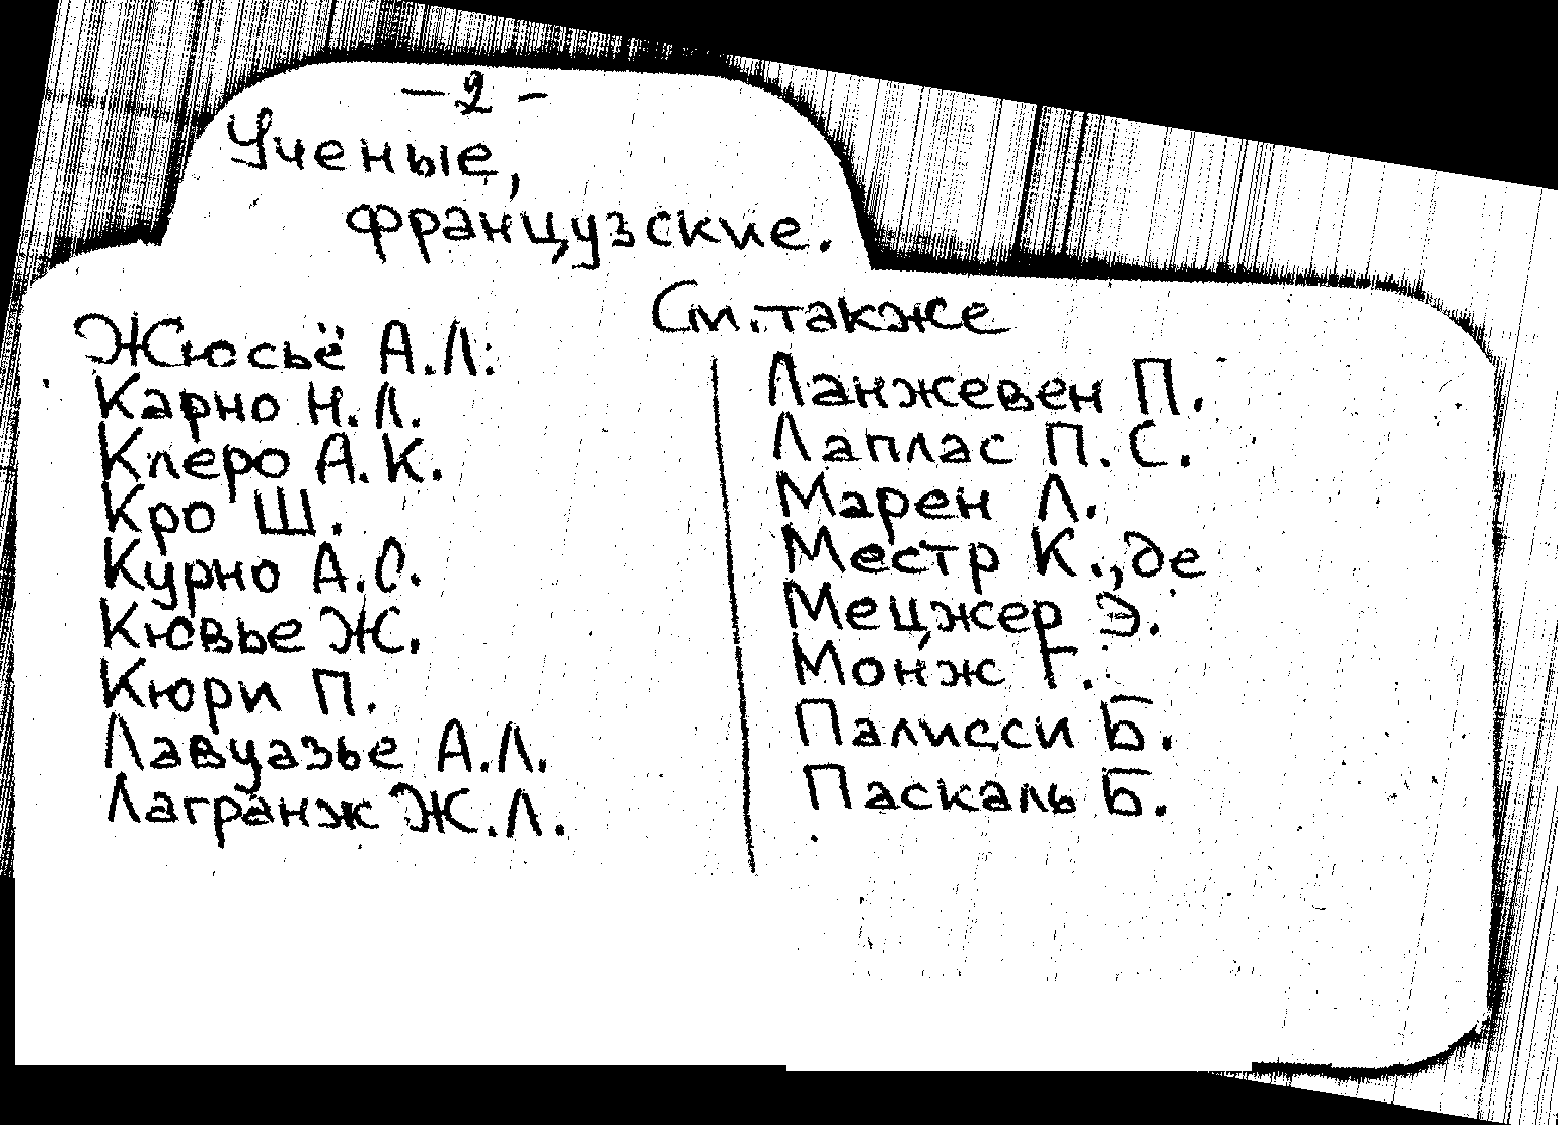 - 2 -
Ученые,
французские.
См. также
Жюсьё А.Л.
Карно Н.Л.
Клеро А.К.
Кро Ш.
Курно А.О.
Кювье Ж.
Кюри П.
Лавуазье А.Л.
Лагранж Ж.Л.
Ланжевен П.
Лаплас П.С.
Марен Л.
Местр К., де
Мецжер Э.
Монж Г.
Палисси Б.
Паскаль Б.